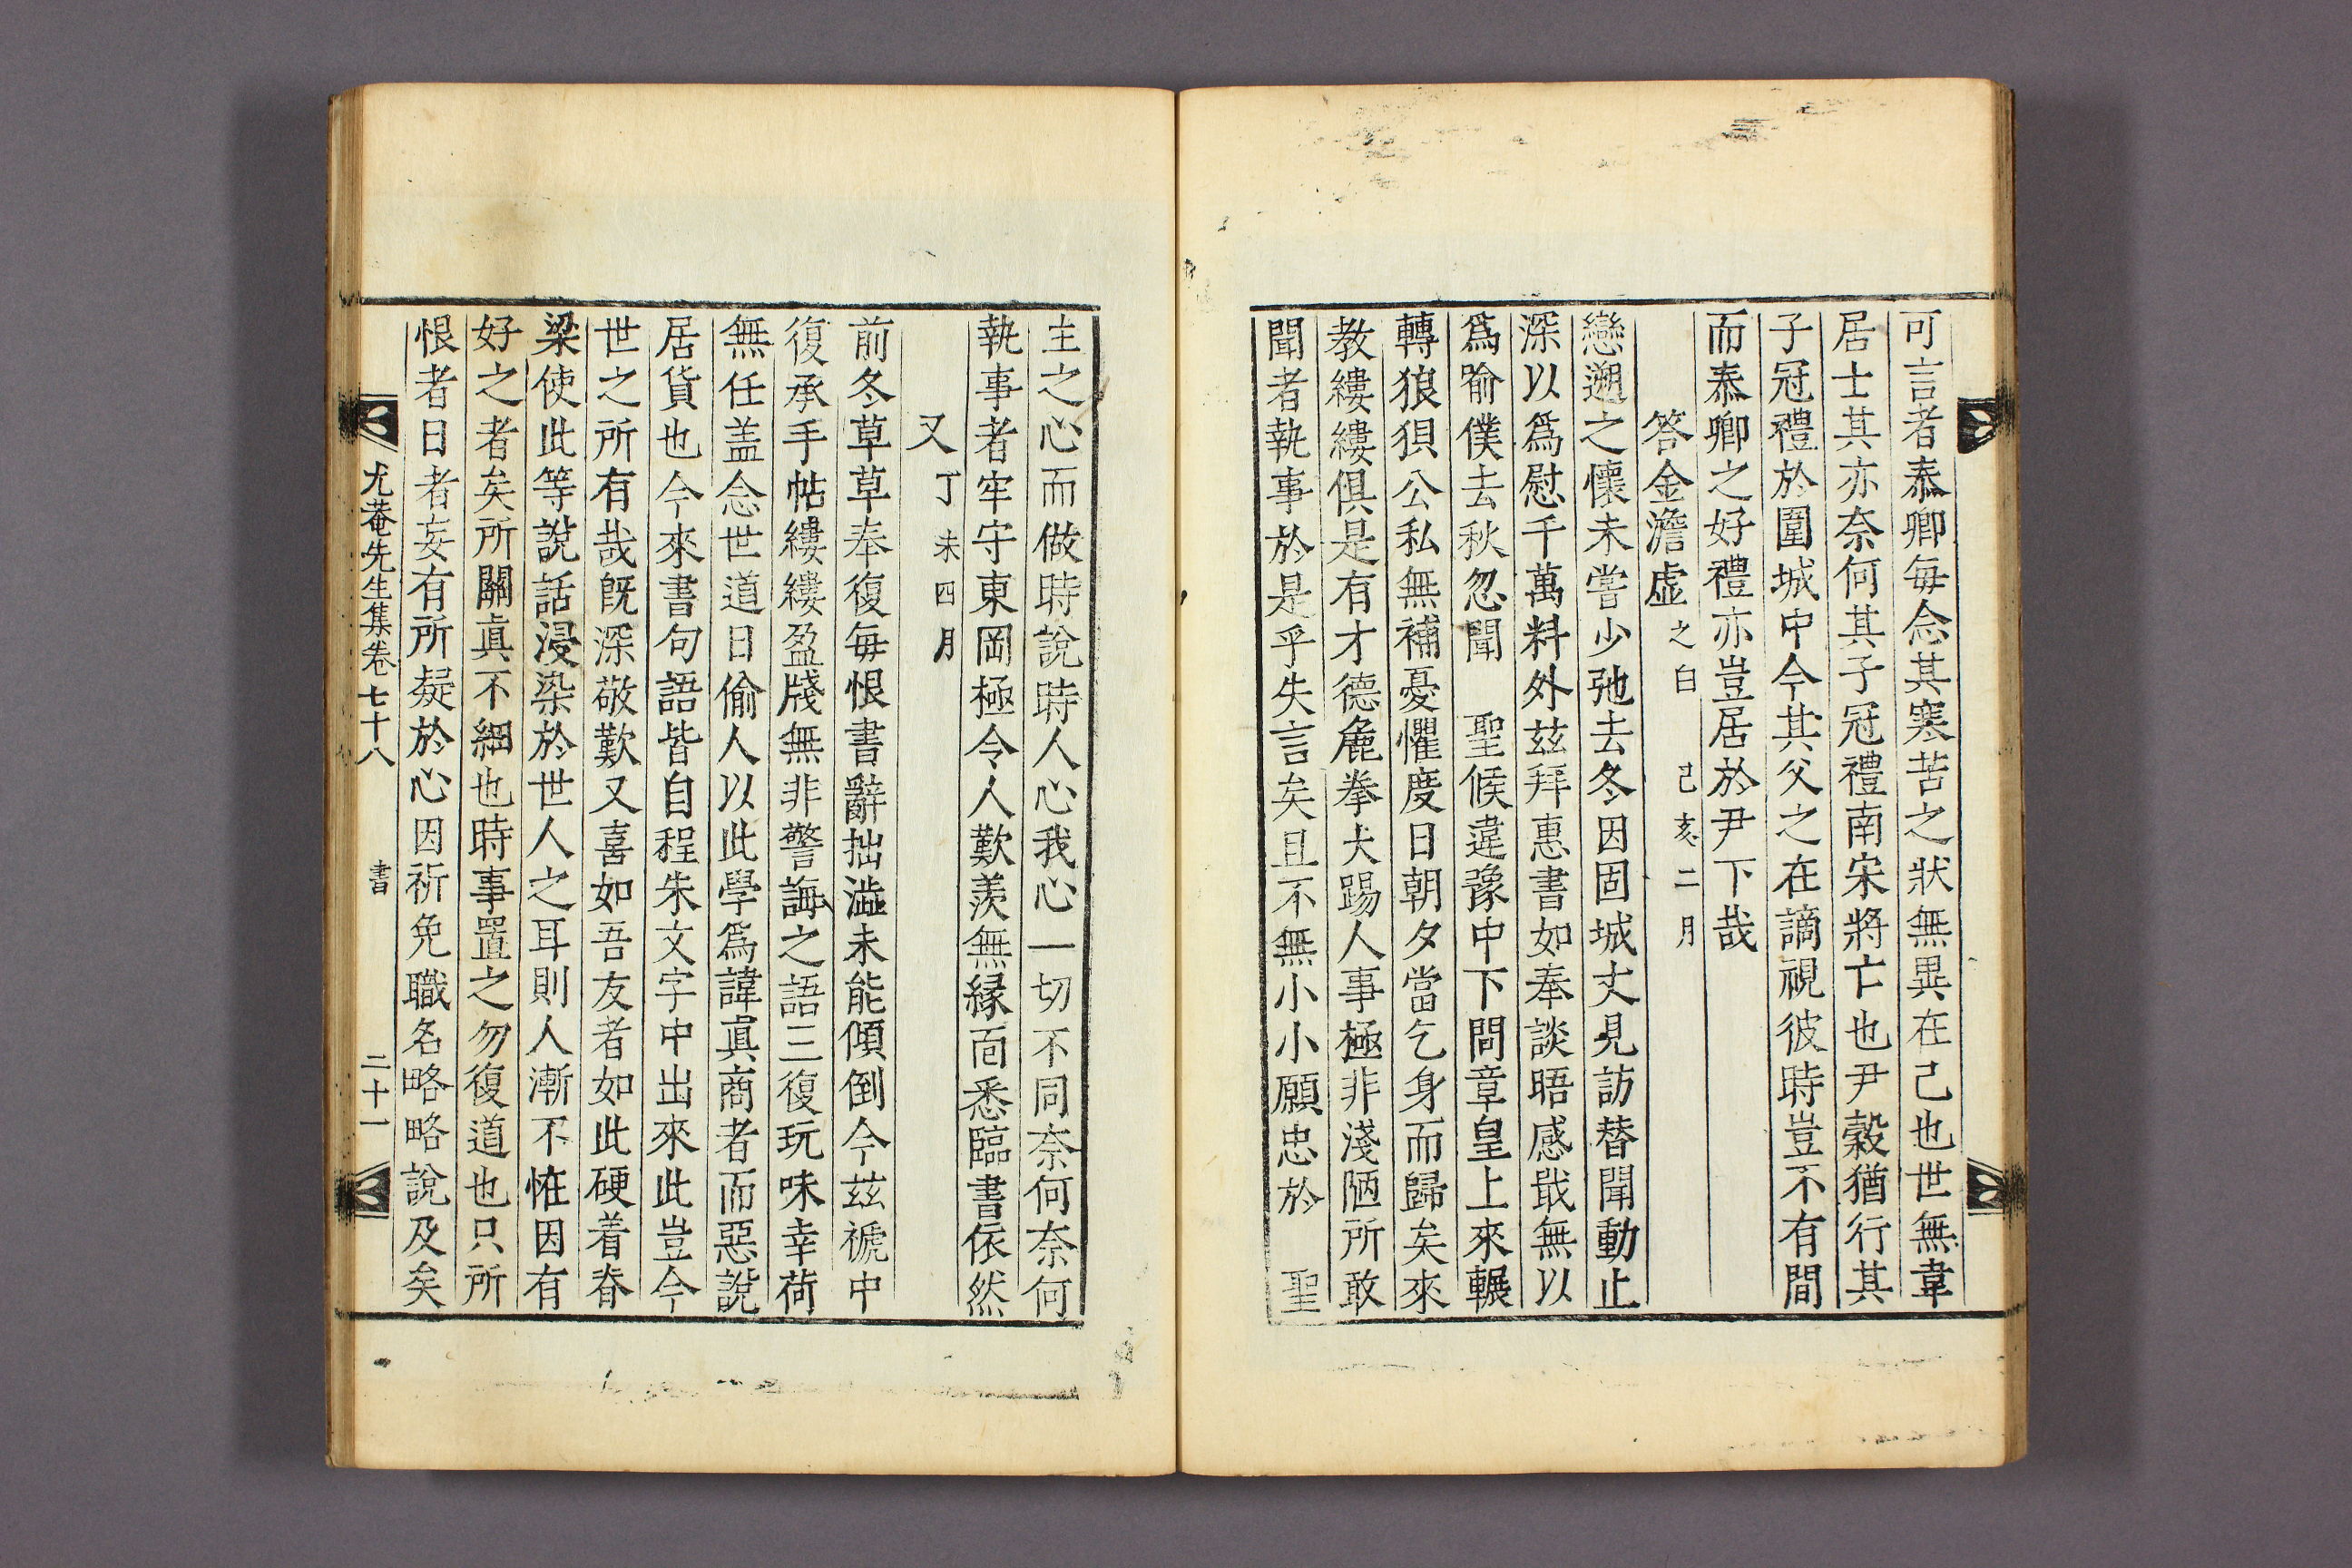 可言者泰卿每念其寒苦之狀無異在己也世無韋
居士其亦奈何其子冠禮南宋將亡也尹穀猶行其
子冠禮於圍城中今其父之在謫視彼時豈不有間
而泰卿之好禮亦豈居於尹下哉
答金澹虛之白 己亥二月
戀遡之懷未嘗少弛去冬因固城丈見訪替聞動止
深以爲慰千萬料外玆拜惠書如奉談晤感戢無以
爲喩僕去秋忽聞 聖候違豫中下問章皇上來輾
轉狼狽公私無補憂懼度日朝夕當乞身而歸矣來
教縷縷俱是有才德麁拳大踢人事極非淺陋所敢
聞者執事於是乎失言矣且不無小小願忠於 聖
主之心而做時說時人心我心一切不同奈何奈何
執事者牢守東岡極令人歎羨無緣面悉臨書依然
又 丁未四月
前冬草草奉復每恨書辭拙澁未能傾倒今玆褫中
復承手帖縷縷盈牋無非警誨之語三復玩味幸荷
無任盖念世道日偷人以此學爲諱眞商者而惡說
居貨也今來書句語皆自程朱文字中出來此豈今
世之所有哉旣深敬歎又喜如吾友者如此硬着脊
梁使此等說話浸染於世人之耳則人漸不恠因有
好之者矣所關眞不細也時事置之勿復道也只所
恨者日者妄有所疑於心因祈免職名略略說及矣
尤菴先生集卷七十八 書 二十一